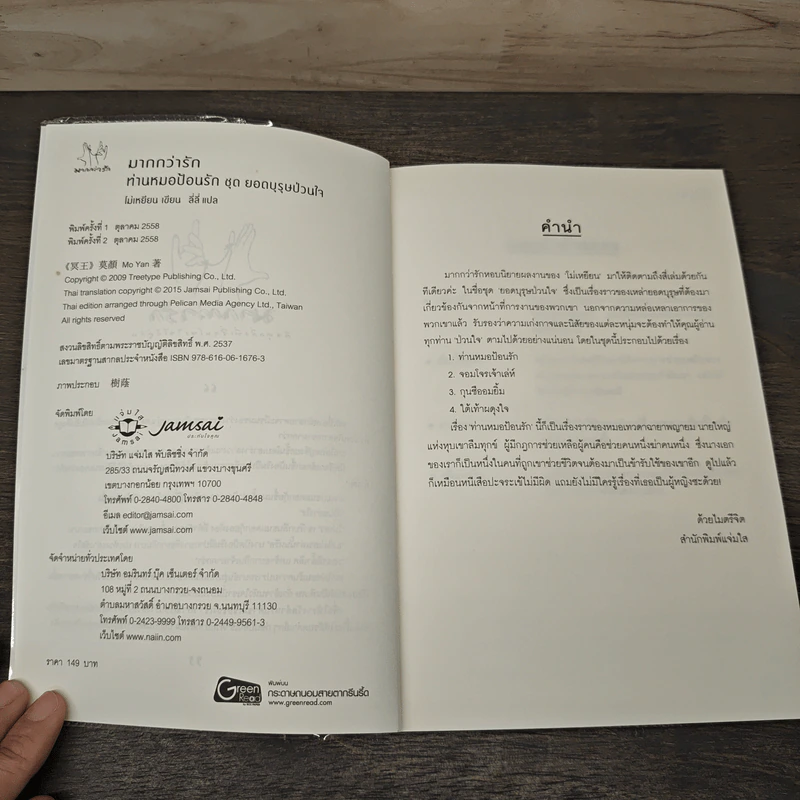 มากกว่ารัก
มากกว่ารัก
ท่านหมอป้อนรัก ชุด ยอดบุรุษป่วนใจ
โม่เหยียน เขียน ลี่ลี่ แปล
พิมพ์ครั้งที่ 1 ตุลาคม 2558
พิมพ์ครั้งที่ 2 ตุลาคม 2558
《冥王》莫顏 Mo Yan 著
Copyright © 2009 Treetype Publishing Co., Ltd.
Thai translation copyright © 2015 Jamsai Publishing Co., Ltd.
Thai edition arranged through Pelican Media Agency Ltd., Taiwan
All rights reserved
สงวนลิขสิทธิ์ตามพระราชบัญญัติลิขสิทธิ์ พ.ศ. 2537
เลขมาตรฐานสากลประจำหนังสือ ISBN 978-616-06-1676-3
ภาพประกอบ 樹蔭
จัดพิมพ์โดย
แจ่มใส
Jamsai
Jamsai
ประทับใจคุณ
บริษัท แจ่มใส พับลิชชิ่ง จำกัด
285/33 ถนนจรัญสนิทวงศ์ แขวงบางขุนศรี
เขตบางกอกน้อย กรุงเทพฯ 10700
โทรศัพท์ 0-2840-4800 โทรสาร 0-2840-4848
อีเมล editor@jamsai.com
เว็บไซต์ www.jamsai.com
จัดจำหน่ายทั่วประเทศโดย
บริษัท อมรินทร์ บุ๊ค เซ็นเตอร์ จำกัด
108 หมู่ที่ 2 ถนนบางกรวย-จงถนอม
ตำบลมหาสวัสดิ์ อำเภอบางกรวย จ.นนทบุรี 11130
โทรศัพท์ 0-2423-9999 โทรสาร 0-2449-9561-3
เว็บไซต์ www.naiin.com
ราคา 149 บาท
Green Read
พิมพ์บน
กระดาษถนอมสายตากรีนรี้ด
www.greenread.com
คำนำ
มากกว่ารักหอบนิยายผลงานของ 'โม่เหยียน' มาให้ติดตามถึงสี่เล่มด้วยกัน
ทีเดียวค่ะ ในชื่อชุด 'ยอดบุรุษป่วนใจ' ซึ่งเป็นเรื่องราวของเหล่ายอดบุรุษที่ต้องมา
เกี่ยวข้องกันจากหน้าที่การงานของพวกเขา นอกจากความหล่อเหลาเอาการของ
พวกเขาแล้ว รับรองว่าความเก่งกาจและนิสัยของแต่ละหนุ่มจะต้องทำให้คุณผู้อ่าน
ทุกท่าน 'ป่วนใจ' ตามไปด้วยอย่างแน่นอน โดยในชุดนี้ประกอบไปด้วยเรื่อง
1. ท่านหมอป้อนรัก
2. จอมโจรเจ้าเล่ห์
3. กุนซืออมยิ้ม
4. ใต้เท้าผดุงใจ
เรื่อง 'ท่านหมอป้อนรัก' นี้ก็เป็นเรื่องราวของหมอเทวดาฉายาพญายม นายใหญ่
แห่งหุบเขาลืมทุกข์ ผู้มีกฎการช่วยเหลือผู้คนคือช่วยคนหนึ่งฆ่าคนหนึ่ง ซึ่งนางเอก
ของเราก็เป็นหนึ่งในคนที่ถูกเขาช่วยชีวิตจนต้องมาเป็นข้ารับใช้ของเขาอีก ดูไปแล้ว
ก็เหมือนหนีเสือปะจระเข้ไม่มีผิด แถมยังไม่มีใครรู้เรื่องที่เธอเป็นผู้หญิงซะด้วย!
ด้วยไมตรีจิต
สำนักพิมพ์แจ่มใส